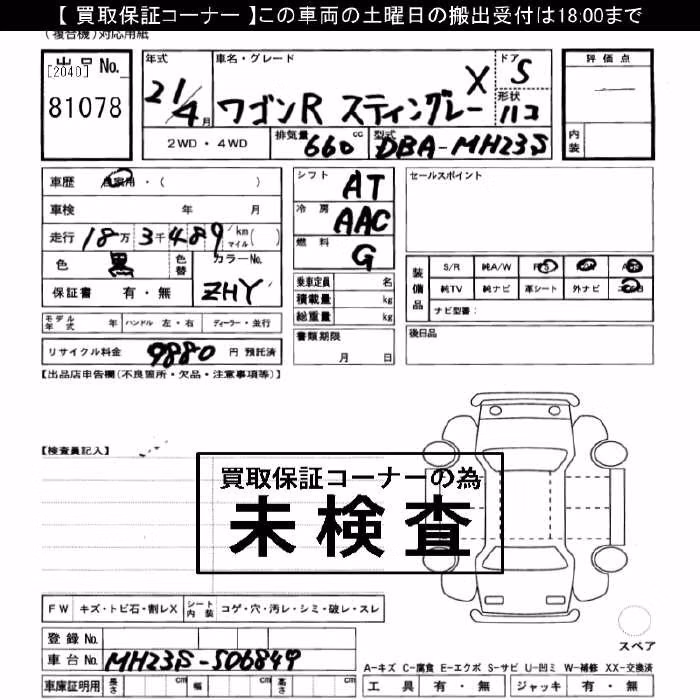 【 買取保証コーナー 】この車両の土曜日の搬出受付は18:00まで
(複合機)対応用紙
出品 No. [2040] 81078
年式 21/4月
車名・グレード ワゴンR スティングレー X
ドア S
形状 ハコ
評価点
内装
2WD・4WD
排気量 660 cc
型式 DBA-MH23S
車歴 自家用・( )
車検 年 月
走行 18万3千489 km マイル( )
色 色替 カラーNo. ZHY
保証書 有・無
シフト AT
冷房 AAC
燃料 G
乗車定員 名
積載量 kg
総重量 kg
書類期限 月 日
セールスポイント
装備品 S/R 純A/W
純TV 純ナビ 革シート 外ナビ
ナビ型番:
後日品
モデル年式 年 ハンドル 左・右 ディーラー・並行
リサイクル料金 9880 円 預託済
【出品店申告欄(不良箇所・欠品・注意事項等)】
【検査員記入】
買取保証コーナーの為
未検査
FW キズ・トビ石・割レX シート内装 コゲ・穴・汚レ・シミ・破レ・スレ
スペア
登録 No.
車台 No. MH23S-506849
A-キズ C-腐食 E-エクボ S-サビ U-凹ミ W-補修 XX-交換済
車庫証明用 長さ cm 幅 cm 高さ cm
工具 有・無 ジャッキ 有・無